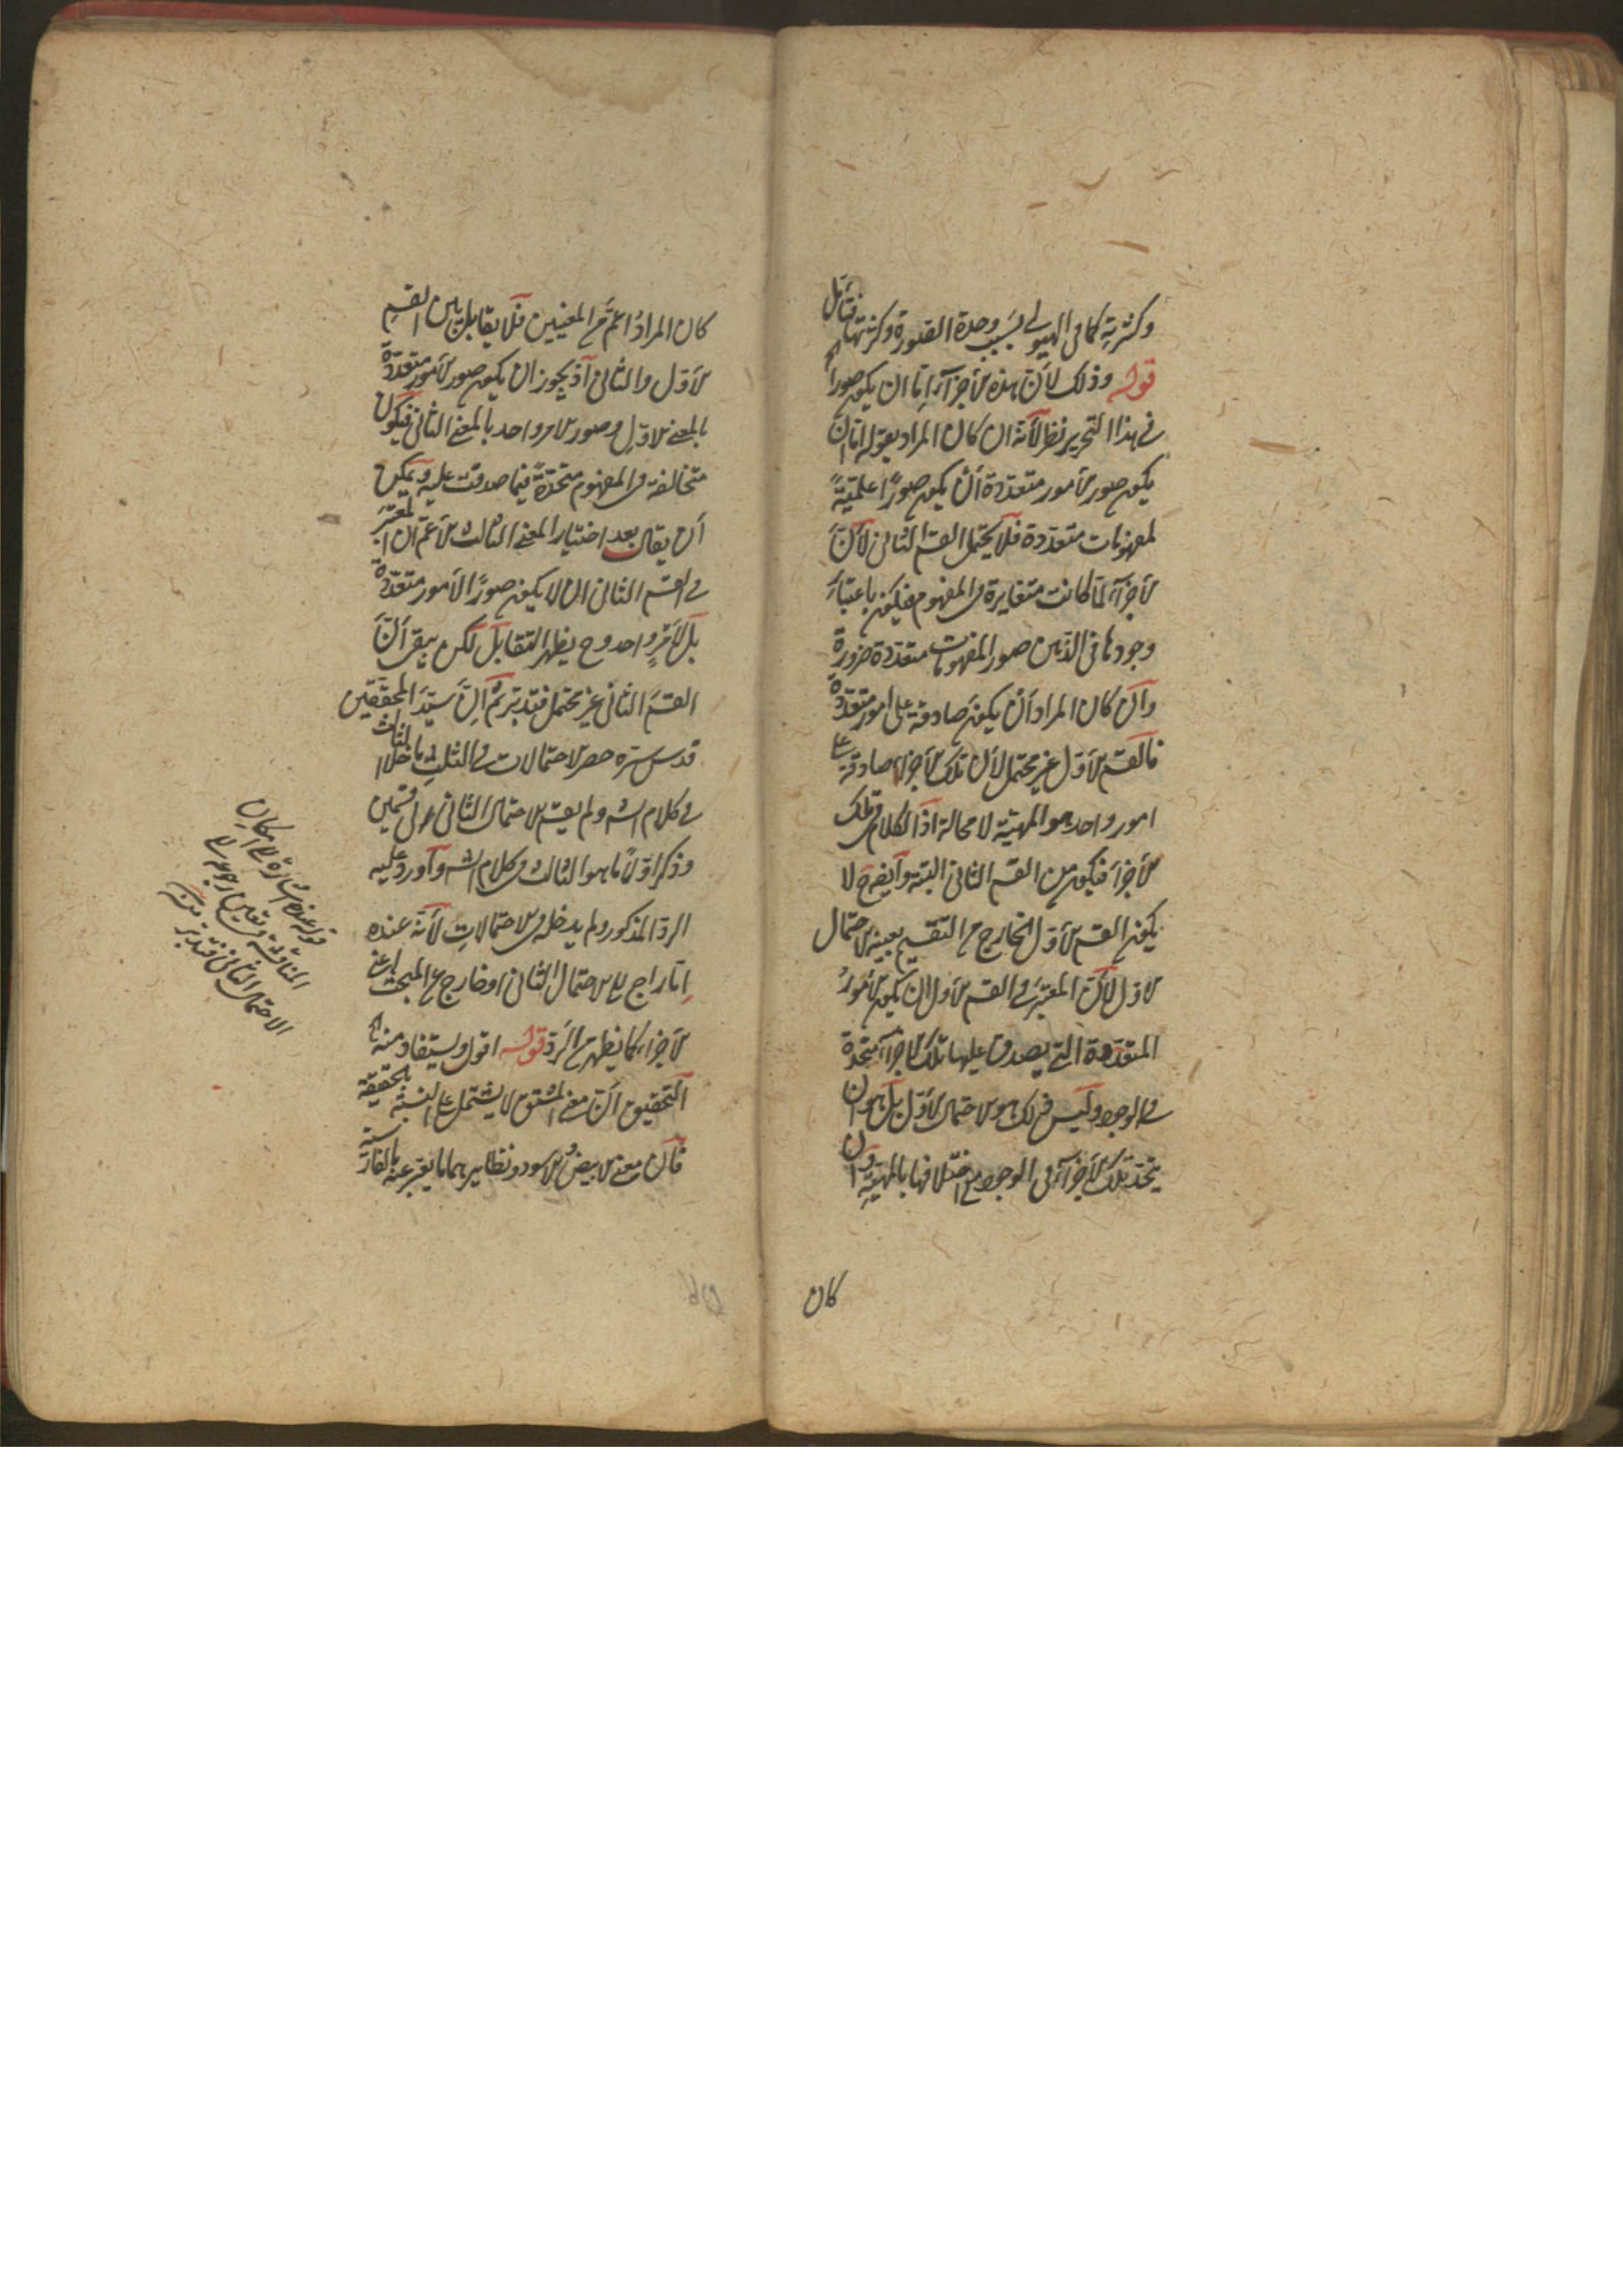 وكثرتة كما فى الهيولى بسبب وحدة الصورة وكثرتها فتأمل
قوله وذلك لأن هذه الأجزاء إما ان يكون صوراً
فى هذا التحرير نظر لأنه ان كان المراد بقوله اما ان
يكون صور الأمور متعددة أن يكون صورًا علمية
لمفهومات متعددة فلا يحتمل القسم الثانى لأن
الأجزاء لما كانت متغايرة فى المفهوم فيكون باعتبار
وجودها فى الذهن صور المفهومات متعددة ضرورة
وان كان المراد أن يكون صادقة على امور متعددة
فالقسم الأول غير محتمل لأن تلك الأجزاء صادقة على
امور واحد هو المهية لا محالة اذ الكلام فى تلك
الأجزاء فيكون من القسم الثانى البتة وايضا ح لا
يكون القسم الأول الخارج من التقسيم بعينه الاحتمال
الاول لأن المعتبر فى القسم الأول ان يكون الأمور
المتعددة التى يصدق عليها تلك الأجزاء متحدة
فى الوجود وليس ذلك هو الاحتمال الأول بل هو ان
يتحد تلك الأجزاء فى الوجود مع اختلافها بالمهية وان
كان
كان المراد اعم من المعنيين فلا يقابل بين القسم
الأول والثانى اذ يجوز ان يكون صور الأمور متعددة
بالمعنى الاول وصور الامر واحد بالمعنى الثانى فيكون
متخالفة فى المفهوم متحدةً فيما صدقت عليه ويمكن
أن يقال بعد اختيار المعنى الثالث الأعم ان المعتبر
فى القسم الثانى ان لا يكون صورًا لأمور متعددة
بل لأمرٍ واحد وح يظهر التقابل لكن يبقى أن
القسم الثانى غير محتمل فتدبر ثم ان سيد المحققين
قدس سره حصر الاحتمالات فى الثلث ما خلا الثالث
فى كلام الش ولم يقسم الاحتمال الثانى الى قسمين
وذكر اولاً ما هو الثالث فى كلام الش وأورد عليه
الرد المذكور ولم يدخله فى الاحتمالات لأنه عنده
إما راجع الى الاحتمال الثانى او خارج عن المبحث اعنى
الأجزاء كما يظهر من الرد قوله اقول ويستفاد منه
التحقيق أن معنى المشتق لا يشتمل على النسبة بالحقيقة
فان معنى الابيض والاسود ونظايرهما ما يعبر عنه بالفارسية
قوله عنده اشارة الى امكان
المناقشة فى تعيين ارجاعه الى
الاحتمال الثانى فتدبر